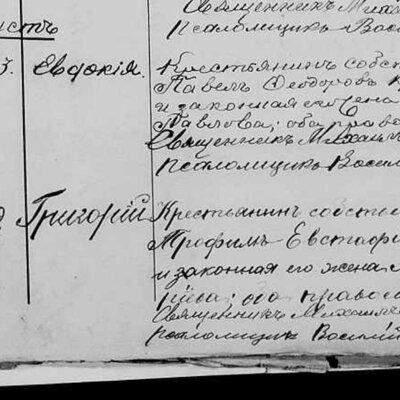 Священникъ Миха
Псаломщикъ Васи
истъ
3. Евдокія. Крестьянинъ собст
Павелъ Ѳеодоровъ К
и законная его жена
Павлова; оба право
Священникъ Михаи
Псаломщикъ Васил
Григорій Крестьянинъ собстве
Трофимъ Евстафі
и законная его жена
оба правос
Священникъ Михаил
Псаломщикъ Василій